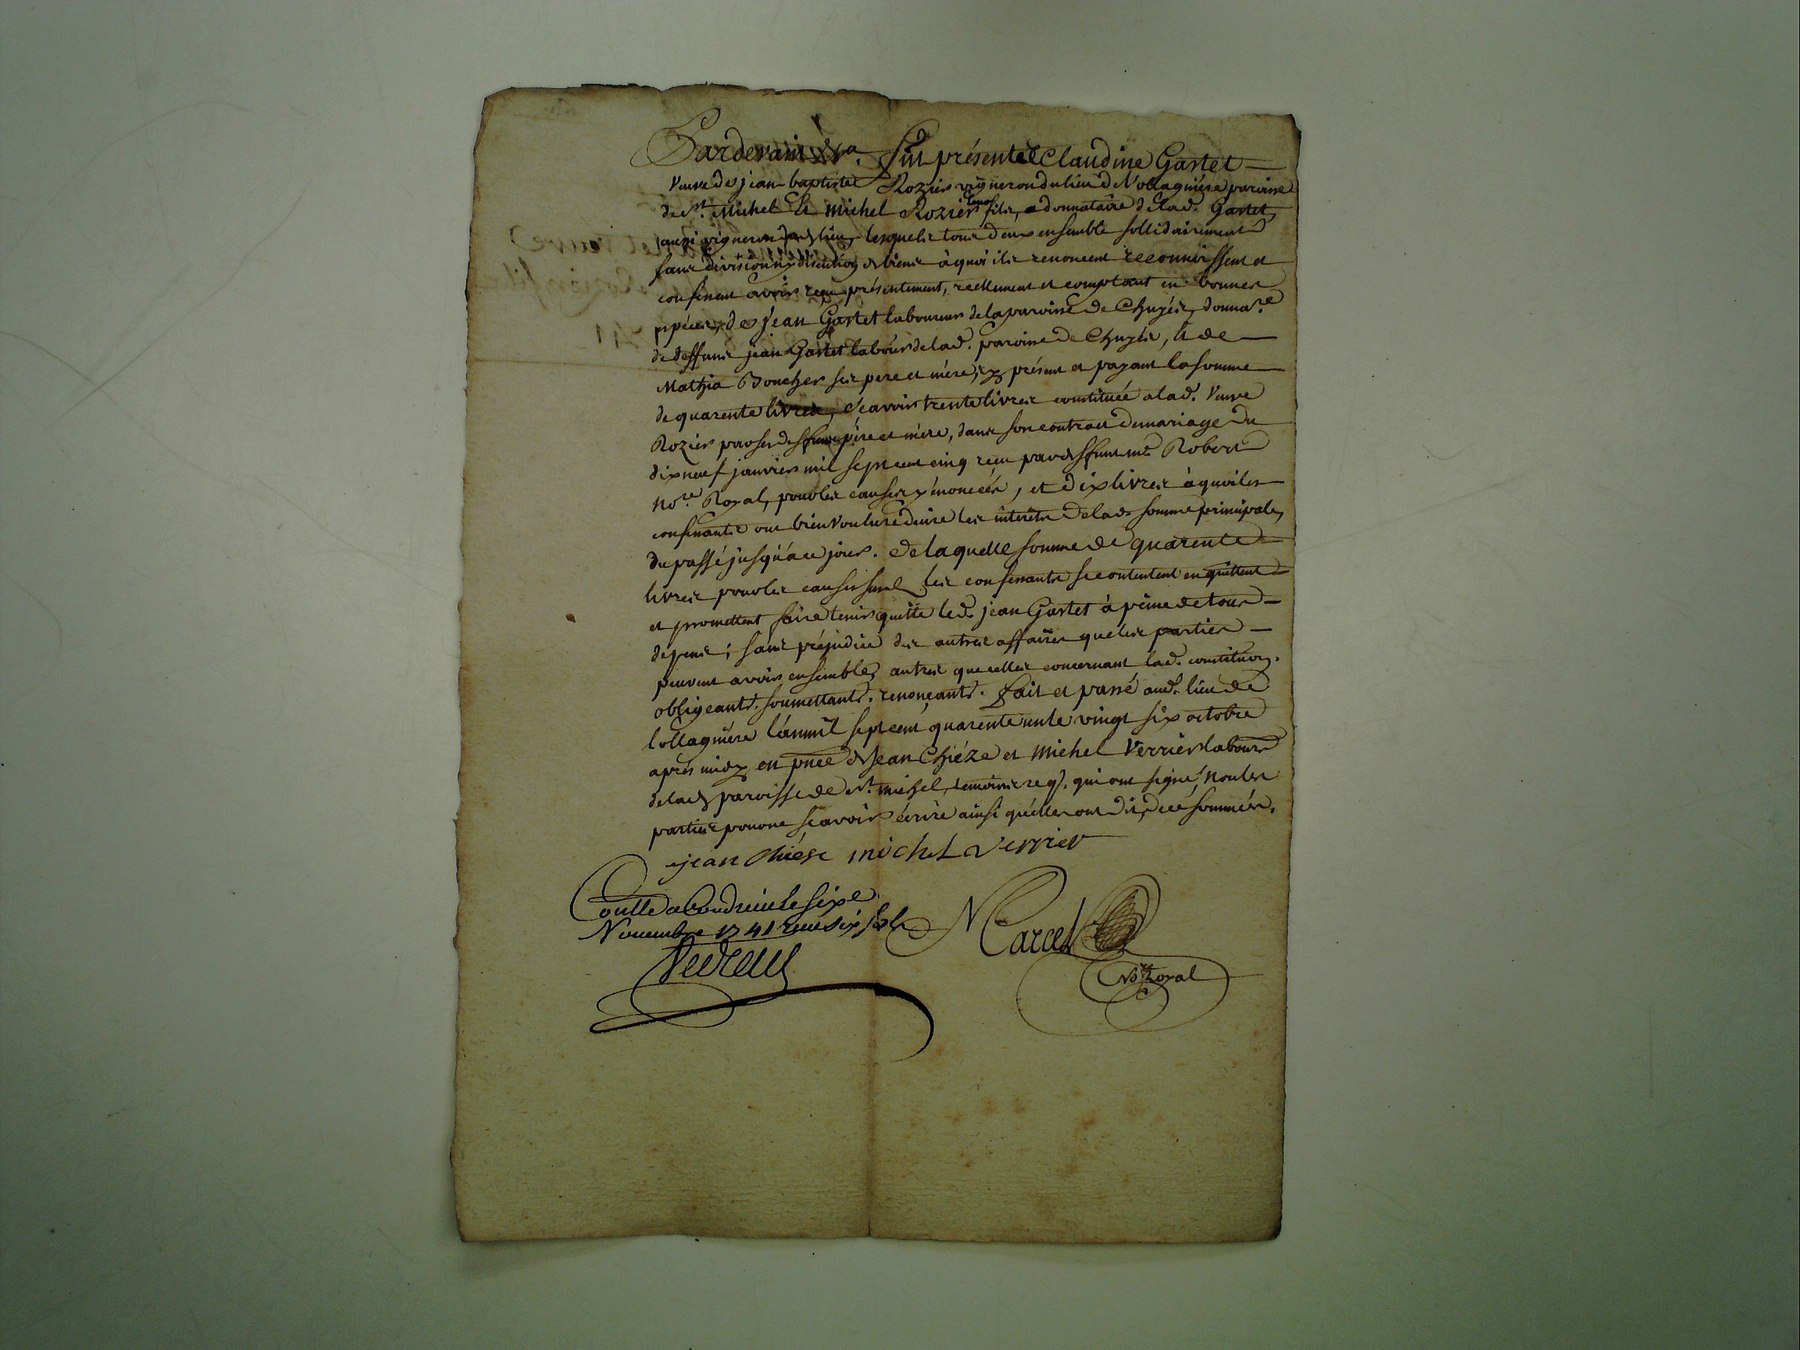 Pardevant Fut présente Claudine Gartet
Veuve de jean baptiste Rozier vigneron du lieu de Vollaguière paroisse
de St. Michel Et Michel Rozier leur fils, donnataire de lad. Gartet,
aussi vigneron dud. lieu, lesquels tous deux ensemble sollidairement
sans division ny discution de biens à quoi ils renoncent reconnoissent et
confessent avoir reçu présentement, reellement et comptant en bonnes
espèces, de jean Gartet laboureur de la paroisse de Chuyés, donnare
de deffunt jean Gartet labour de lad. paroisse de Chuyés, & de
Mathia Boucher ses pere et mère, icy présent et payant la somme
de quarente livres, scavoir trente livres constituée a lad. Veuve
Rozier par sesd. deffunts père et mère, dans son contrat de mariage du
dix neuf janvier mil sept cent cinq reçu par deffunt me Robert
nore Royal, pour les causes y énoncées, et dix livres à quoi les
confessants ont bien voulu reduire les intérêts de lad. somme principale,
du passé jusqu'à ce jour. de laquelle somme de quarente
livres pour les causes susd. les confessants se contentent en quittent
et promettent faire tenir quitte led. jean Gartet à peine de tous
depens; sans préjudice des autres affaires que les parties
peuvent avoir ensembles autres que celles concernant lad. constitution.
obligeants. soumettants. renonçants. fait et passé aud. lieu de
Vollaguière l'an mil sept cent quarente un le vingt six octobre
après midy en pnce de Jean Chièze et Michel Verrier labours
de lad. paroisse de St. Michel, temoins req. qui ont signé, non les
parties pour ne scavoir écrire ainsi qu'elles ont dit, de ce sommées.
jean Chièze michel verrier
Contllé a Condrieu le sixe
Novembre 1741 reçu six sols
N Carcet
Nore Royal